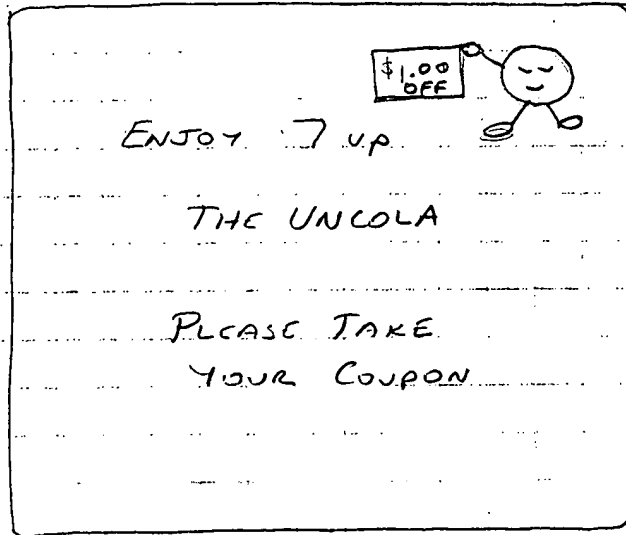 $1.00
OFF
ENJOY 7 UP
THE UNCOLA
PLEASE TAKE
YOUR COUPON